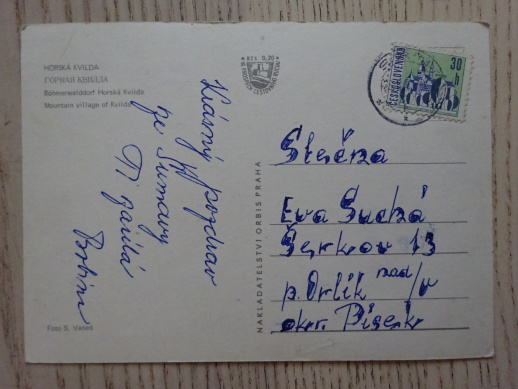 HORSKÁ KVILDA
ГОРНАЯ КВИЛДА
Böhmerwalddorf Horská Kvilda
Mountain village of Kvilda
Kčs 0,20
30 h
ČESKOSLOVENSKO
Krásný pozdrav
ze Šumavy
Ti zasílá
NAKLADATELSTVÍ ORBIS PRAHA
Slečna
Eva Suchá
13
p. Orlík nad/V
okr. Písek
Foto S. Vaneš